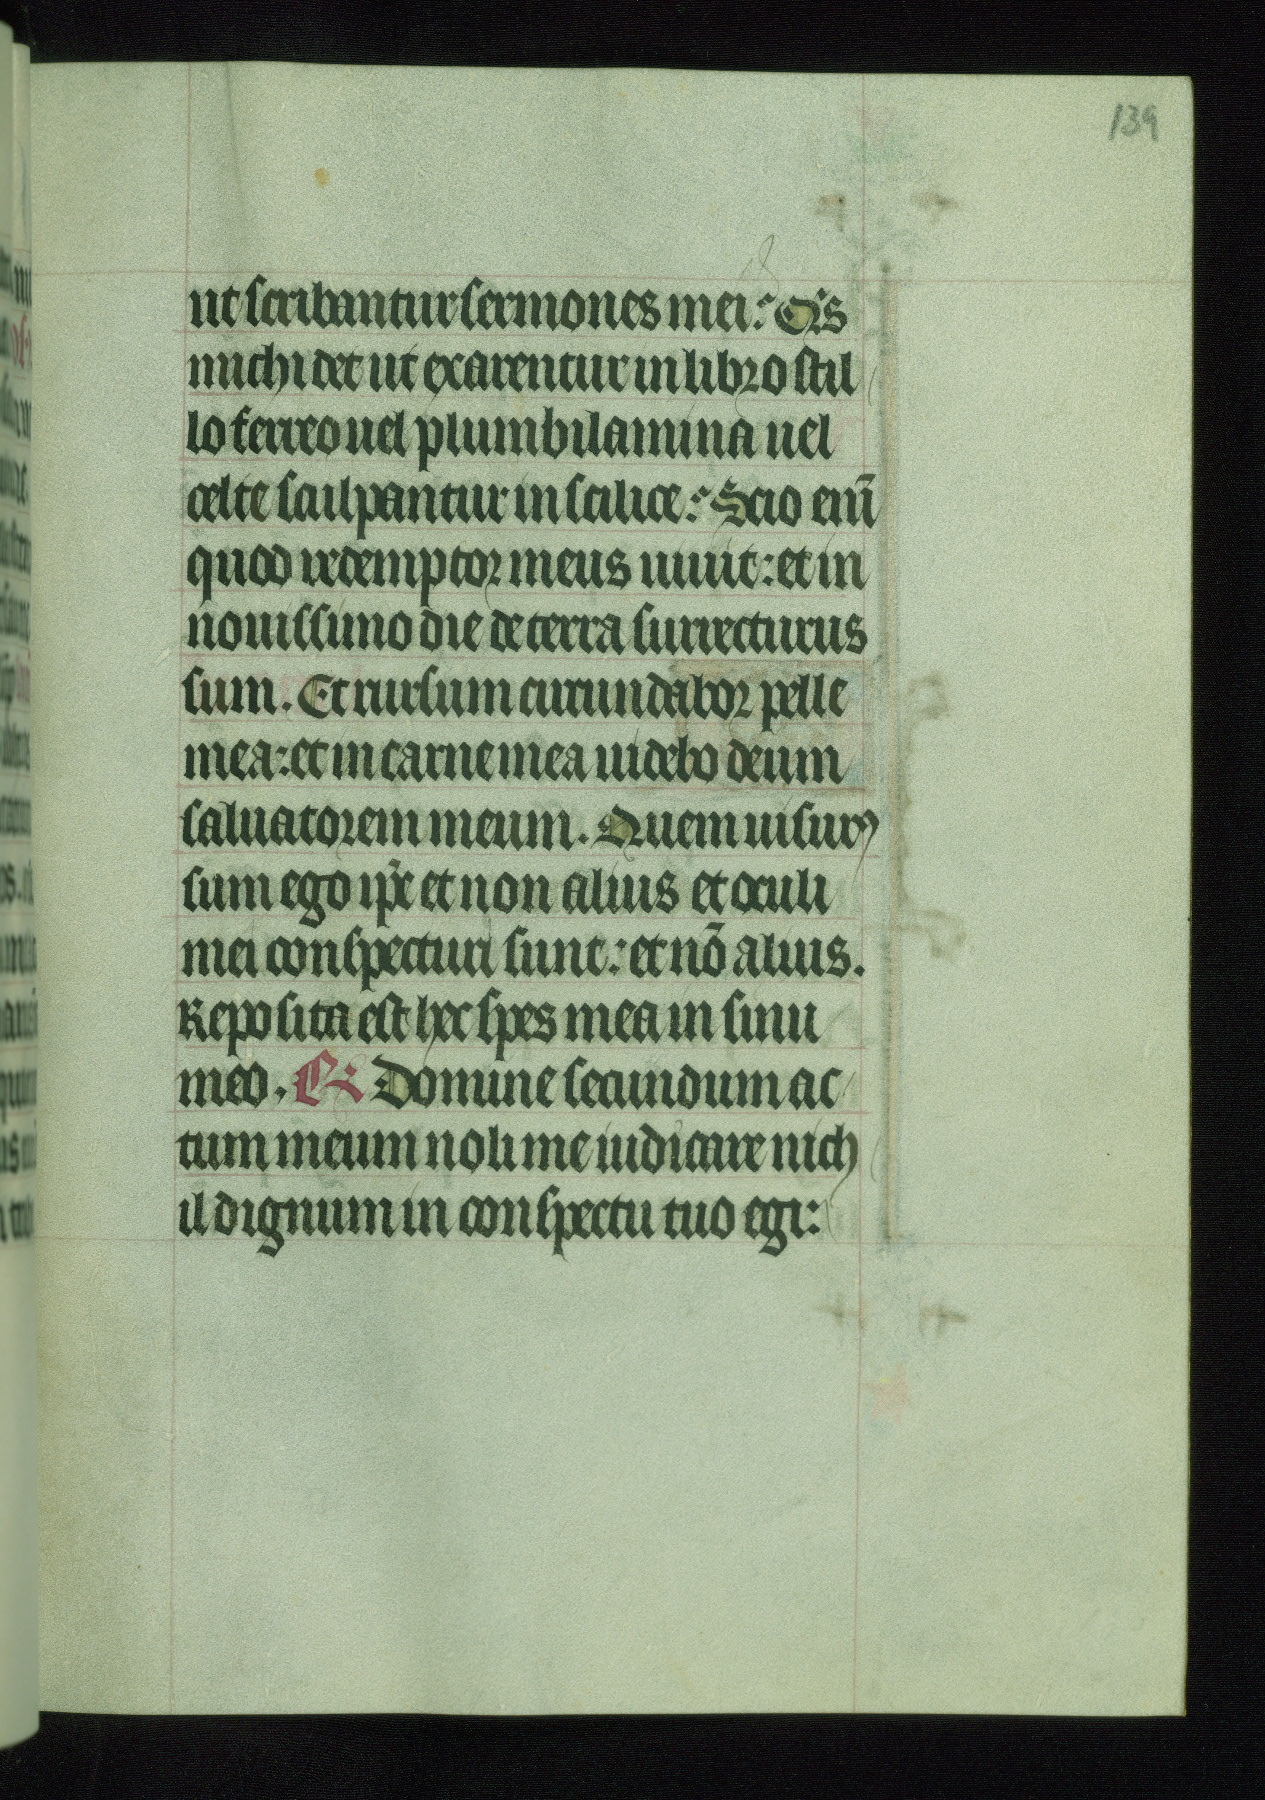 139
ut scribantur sermones mei: Qis
michi det ut exarentur in libro stil
lo ferreo uel plumbi lamina uel
celte sculpantur in scilice: Scio enī
quod redemptor meus uiuit: et in
nouissimo die de terra surrecturus
sum. Et rursum circundabor pelle
mea: et in carne mea uidebo deum
saluatorem meum. Quem uisurꝰ
sum ego ip̄e et non alius et oculi
mei conspecturi sunt: et nō alius.
Reposita est hec spes mea in sinu
meo. ℟ Domine secundum ac
tum meum noli me iudicare nich
il dignum in conspectu tuo egi: